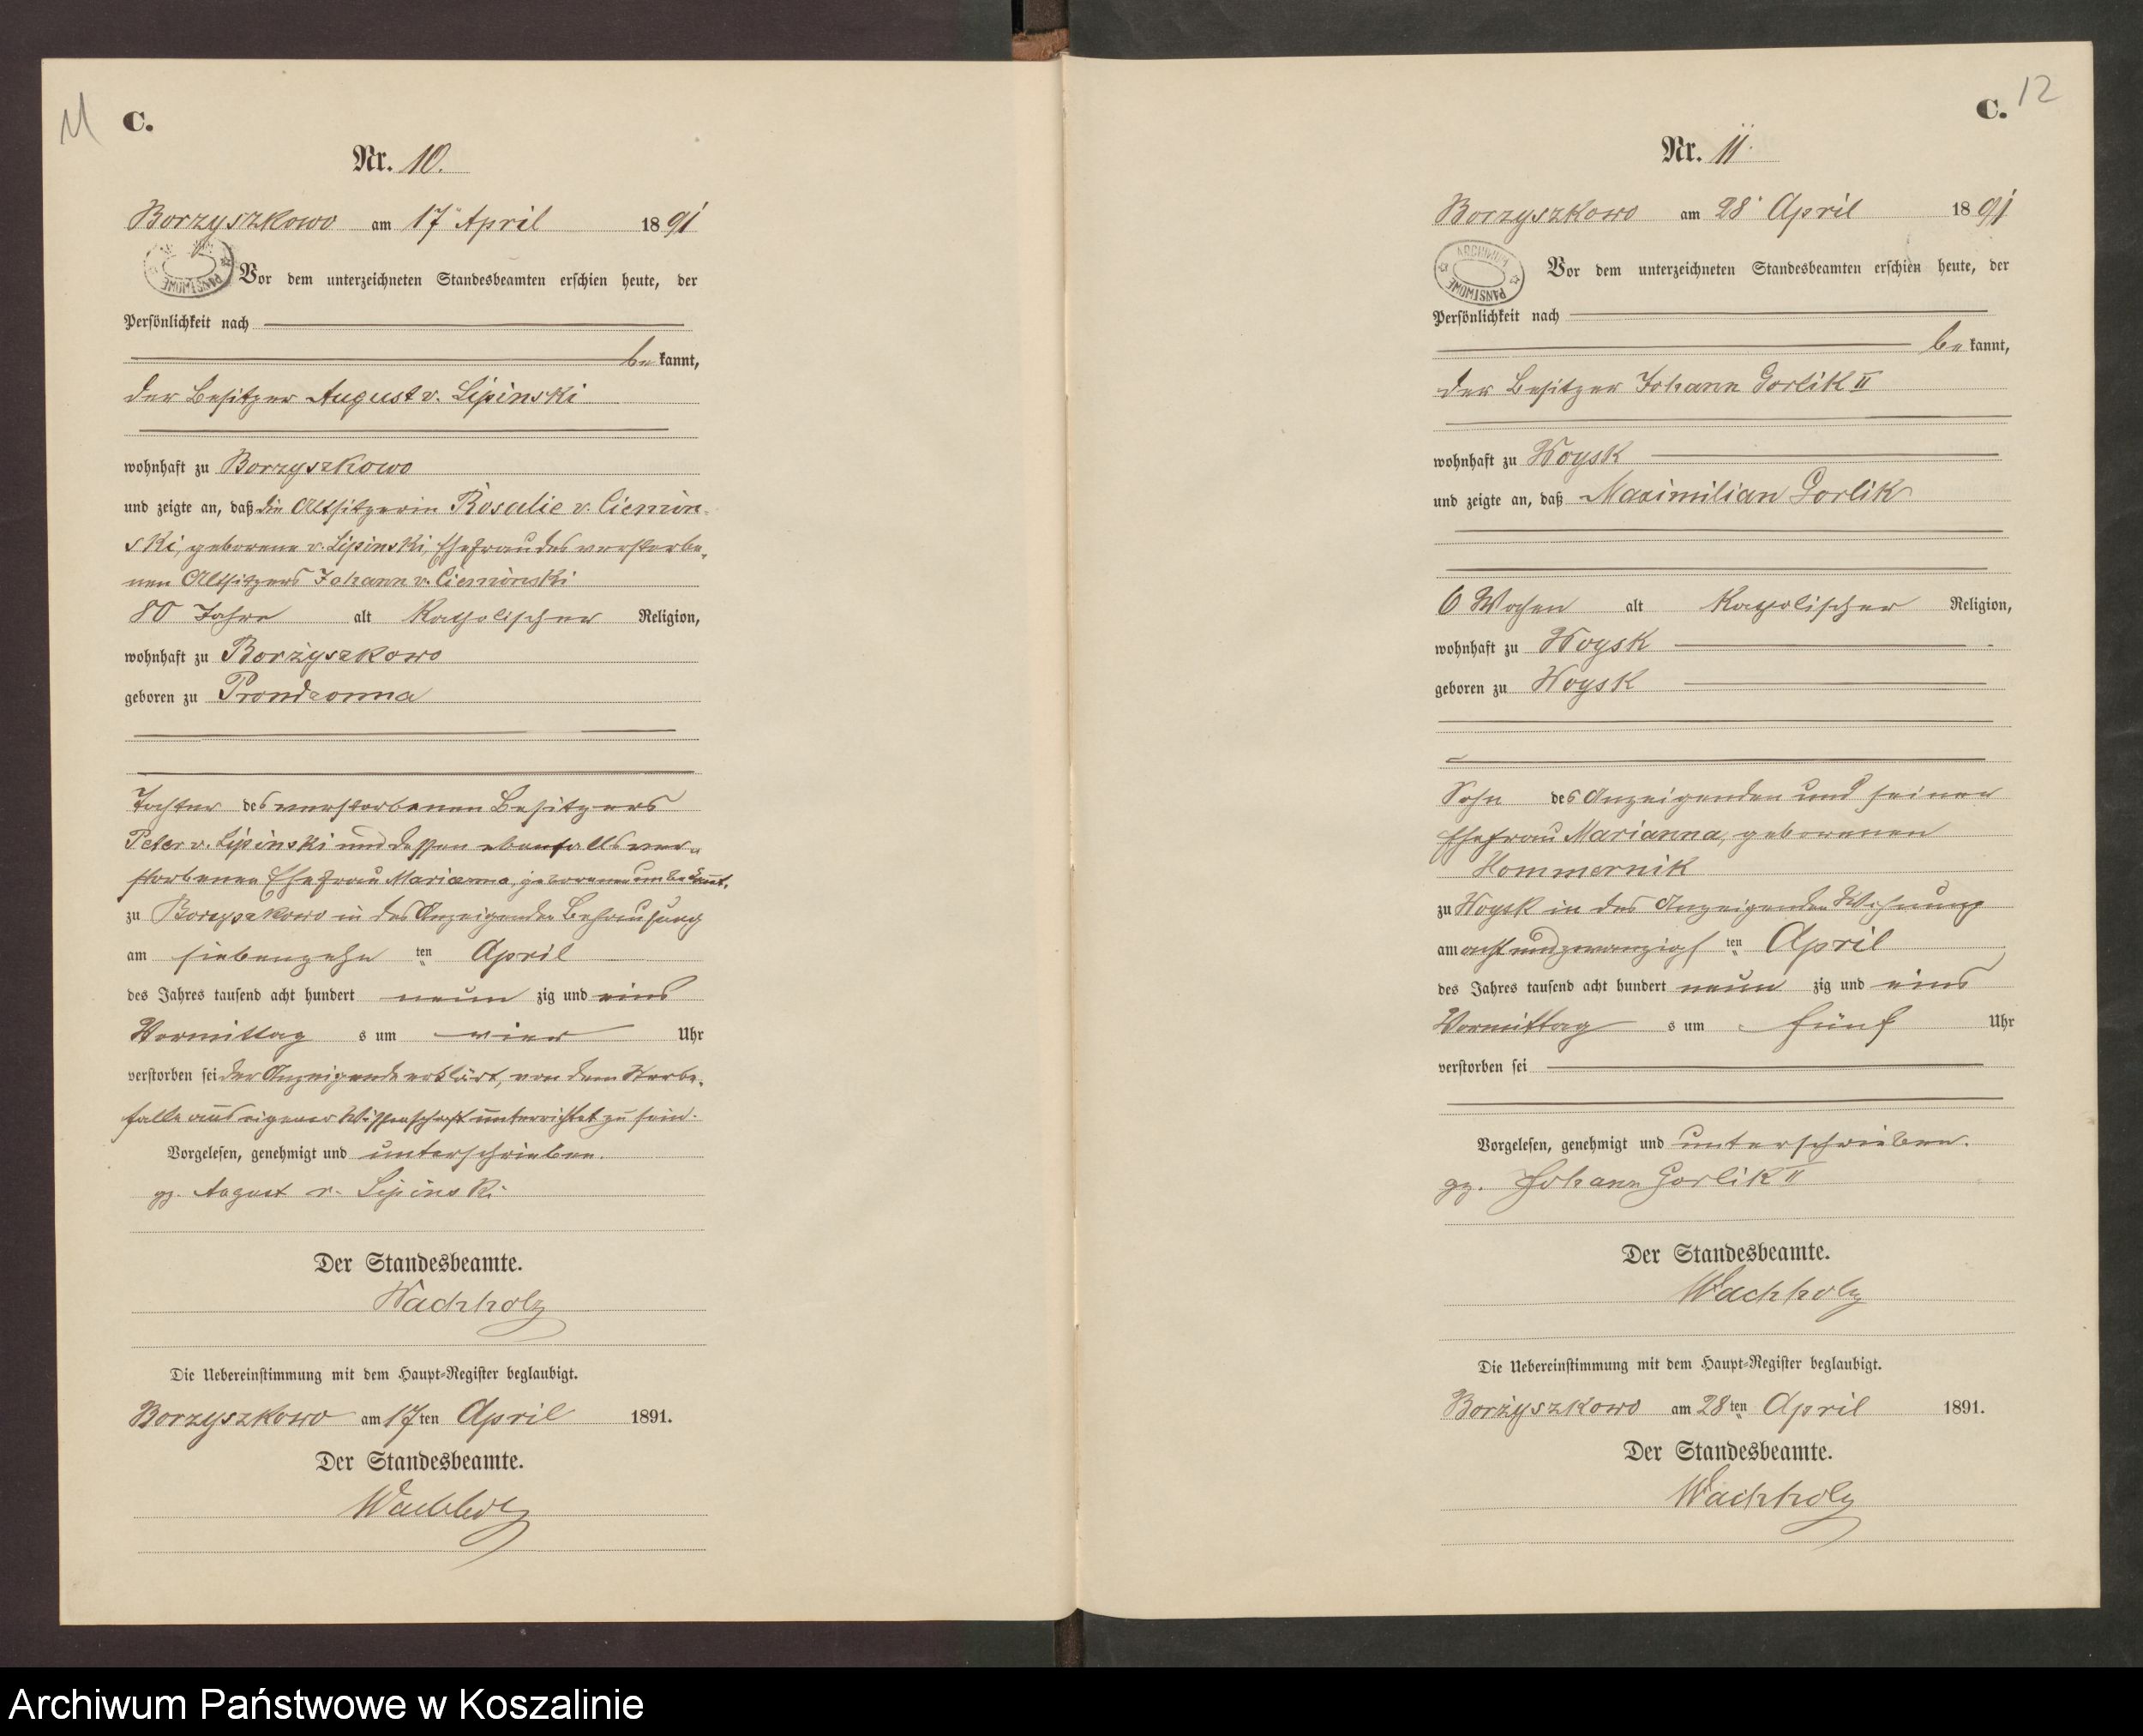 11
C.
Nr. 10.
Borzyszkowo am 17 April 1891
Vor dem unterzeichneten Standesbeamten erschien heute, der
Persönlichkeit nach
be kannt,
der Besitzer August v. Lipinski
wohnhaft zu Borzyszkowo
und zeigte an, daß die Altsitzerin Rosalie v. Ciemin-
ski, geborene v. Lipinski, Ehefrau des verstorbe-
nen Altsitzers Johann v. Cieminski
80 Jahre alt katholischer Religion,
wohnhaft zu Borzyszkowo
geboren zu Prondzonna
Tochter des verstorbenen Besitzers
Peter v. Lipinski und dessen ebenfalls ver-
storbenen Ehefrau Marianna, geborene unbekannt.
zu Borzyszkowo in des Anzeigenden Behausung
am siebenzehn ten April
des Jahres tausend acht hundert neun zig und eins
Vormittag s um vier Uhr
verstorben sei der Anzeigende erklärt, von dem Sterbe-
falle aus eigener Wissenschaft unterrichtet zu sein.
Vorgelesen, genehmigt und unterschrieben.
gz. August v. Lipinski
Der Standesbeamte.
Wachholz
Die Uebereinstimmung mit dem Haupt-Register beglaubigt.
Borzyszkowo am 17ten April 1891.
Der Standesbeamte.
Wachholz
12
C.
Nr. 11.
Borzyszkowo am 28 April 1891
ARCHIWUM PAŃSTWOWE
Vor dem unterzeichneten Standesbeamten erschien heute, der
Persönlichkeit nach
be kannt,
der Besitzer Johann Gorlik II
wohnhaft zu Woysk
und zeigte an, daß Maximilian Gorlik
6 Wochen alt katholischer Religion,
wohnhaft zu Woysk
geboren zu Woysk
Sohn des Anzeigenden und seiner
Ehefrau Marianna, geborenen
Kommernik
zu Woysk in des Anzeigenden Wohnung
am acht und zwanzigs ten April
des Jahres tausend acht hundert neun zig und eins
Vormittag s um fünf Uhr
verstorben sei
Vorgelesen, genehmigt und unterschrieben.
gz. Johann Gorlik II
Der Standesbeamte.
Wachholz
Die Uebereinstimmung mit dem Haupt-Register beglaubigt.
Borzyszkowo am 28ten April 1891.
Der Standesbeamte.
Wachholz
Archiwum Państwowe w Koszalinie